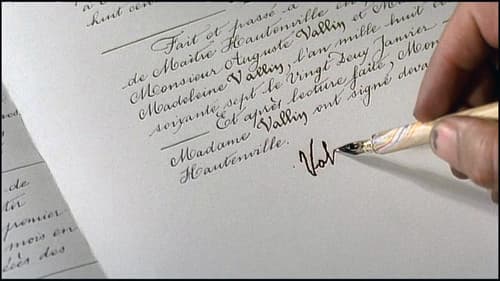 huit cent
Fait et passé à
de Maître Hautenville en
Monsieur Auguste Vallin et
Madeleine Vallin, l'an mille huit
soixante sept le Vingt Deux Janvier
Et après lecture faite, Mon
Madame Vallin ont signé deva
Hautenville.
Val
de
ter
premier
mois en
des